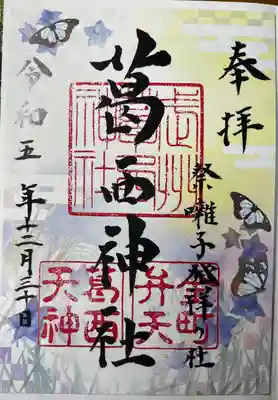 奉拝
祭囃子発祥の社
葛西神社
令和五年十二月三十日
金町
弁天
葛西
天神